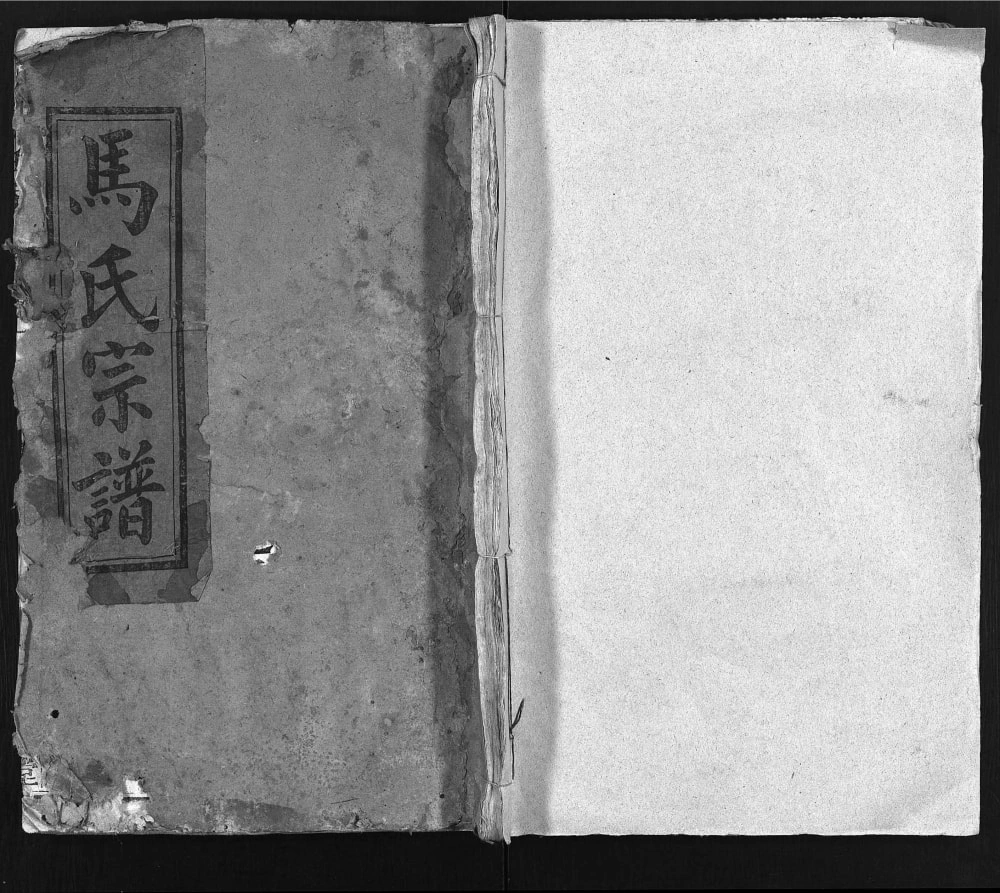 馬氏宗譜